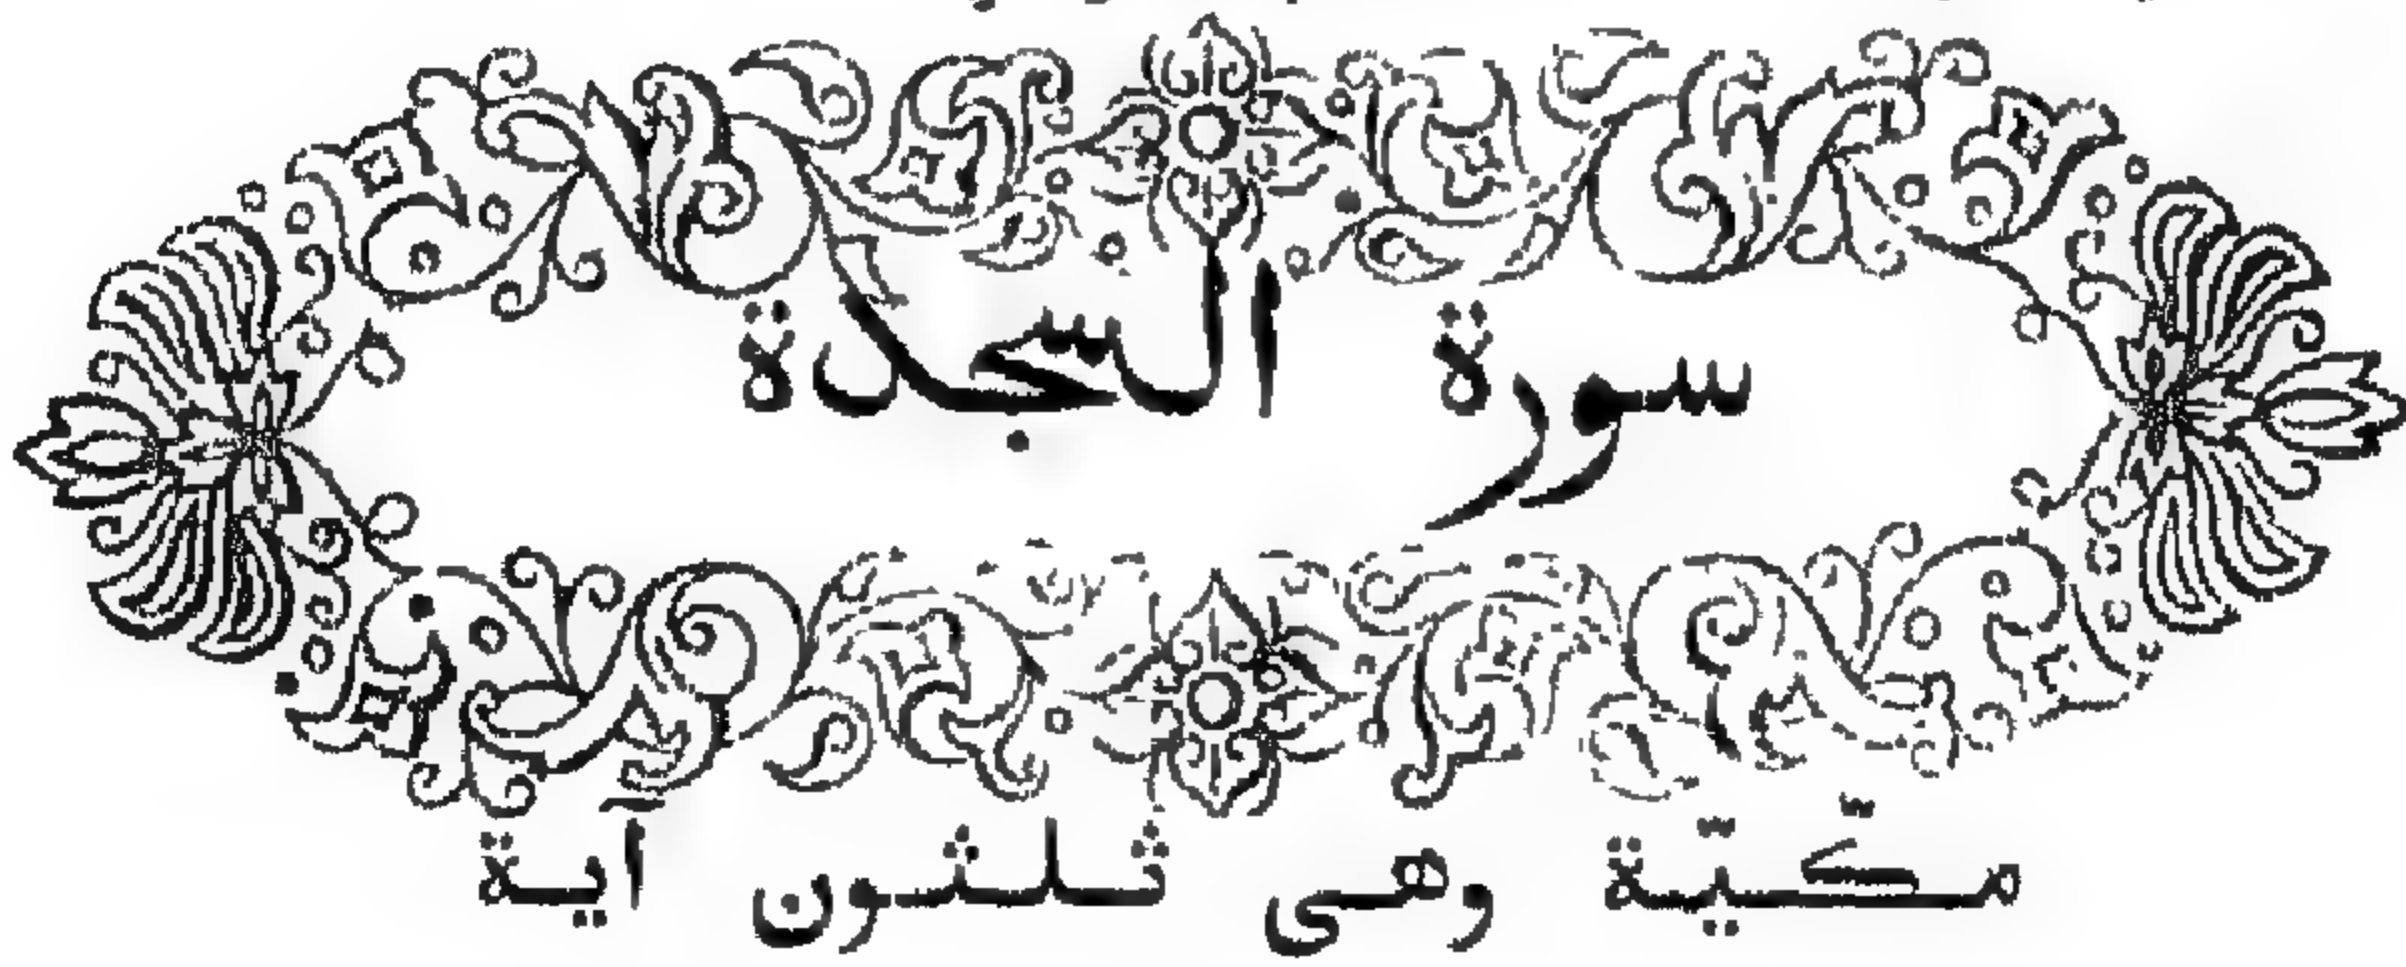 سورة السجدة
مكّيّة وهى ثلثون آية